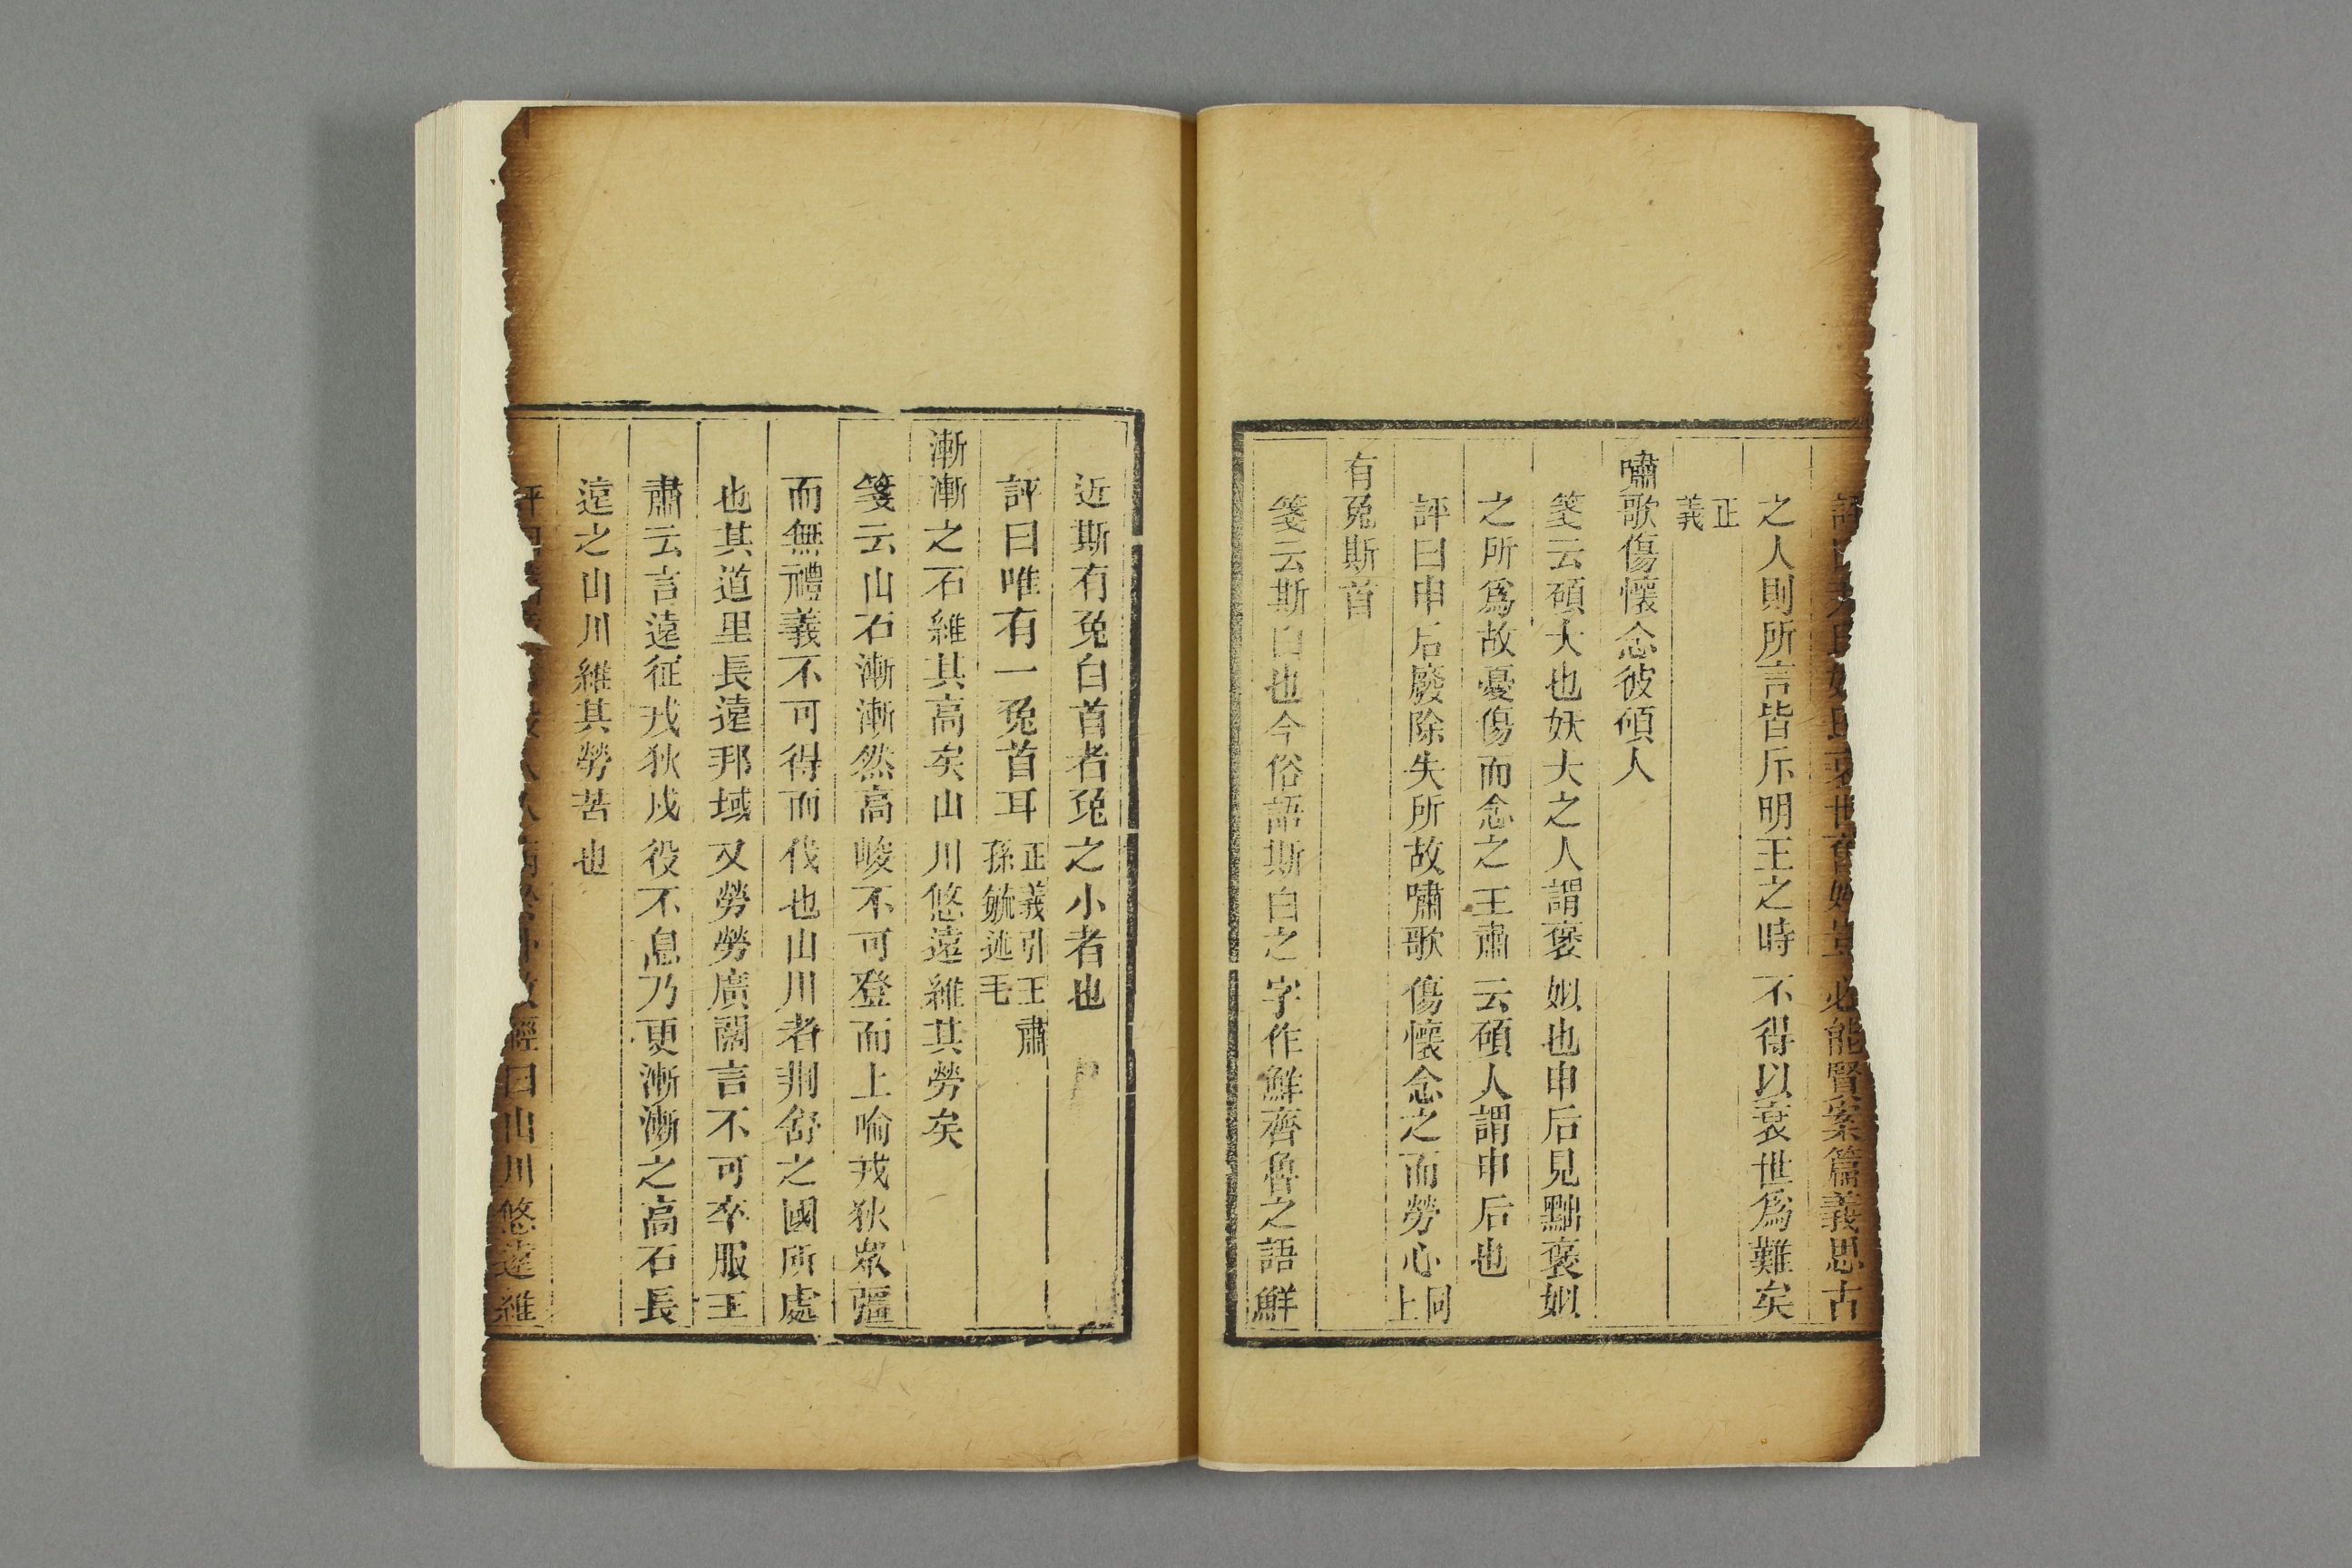 必能賢案篇義思古
之人則所言皆斥明王之時不得以衰世爲難矣
正義
嘯歌傷懷念彼碩人
箋云碩大也妖大之人謂褒姒也申后見黜褒姒
之所爲故憂傷而念之王肅云碩人謂申后也
評曰申后廢除失所故嘯歌傷懷念之而勞心同上
有兔斯首
箋云斯白也今俗語斯白之字作鮮齊魯之語鮮
近斯有兔白首者兔之小者也
評曰唯有一兔首耳正義引王肅孫毓述毛
漸漸之石維其高矣山川悠遠維其勞矣
箋云山石漸漸然高峻不可登而上喻戎狄衆彊
而無禮義不可得而伐也山川者荆舒之國所處
也其道里長遠邦域又勞勞廣闊言不可卒服王
肅云言遠征戎狄戍役不息乃更漸漸之高石長
遠之山川維其勞苦也
經曰山川悠遠維